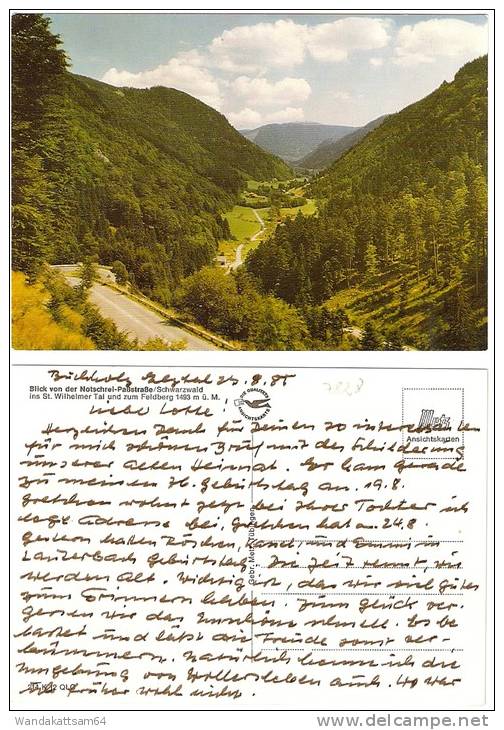 Buchholz Elztal 25.8.85
Blick von der Notschrei-Paßstraße/Schwarzwald
ins St. Wilhelmer Tal und zum Feldberg 1493 m ü. M.
DIE QUALITÄTS ANSICHTSKARTE
Metz
Ansichtskarten
Liebe Lotte!
Herzlichen Dank für Deinen so interessanten
für mich schönen Brief mit der Schilderung
unserer alten Heimat. Er kam gerade
zu meinem 76. Geburtstag an. 19.8.
Gretchen wohnt jetzt bei Ihrer Tochter ich
lege Adresse bei, Gretchen hat a. 24.8.
gestern hatten Röschen, und in
Lauterbach Geburtstag. Die Zeit rennt, wir
werden alt. Wichtig ist, dass wir viel gutes
zum Erinnern haben. Zum Glück ver-
gessen wir das schnell. Es be
lastet und lässt die Freude sonst ver-
kümmern. Natürlich kenne ich die
Umgebung von Wollersleben auch. Wo war
Sie früher wohl nicht.
Gebr. Metz, Tübingen
Wandakattsam64
© DELCAMPE.NET